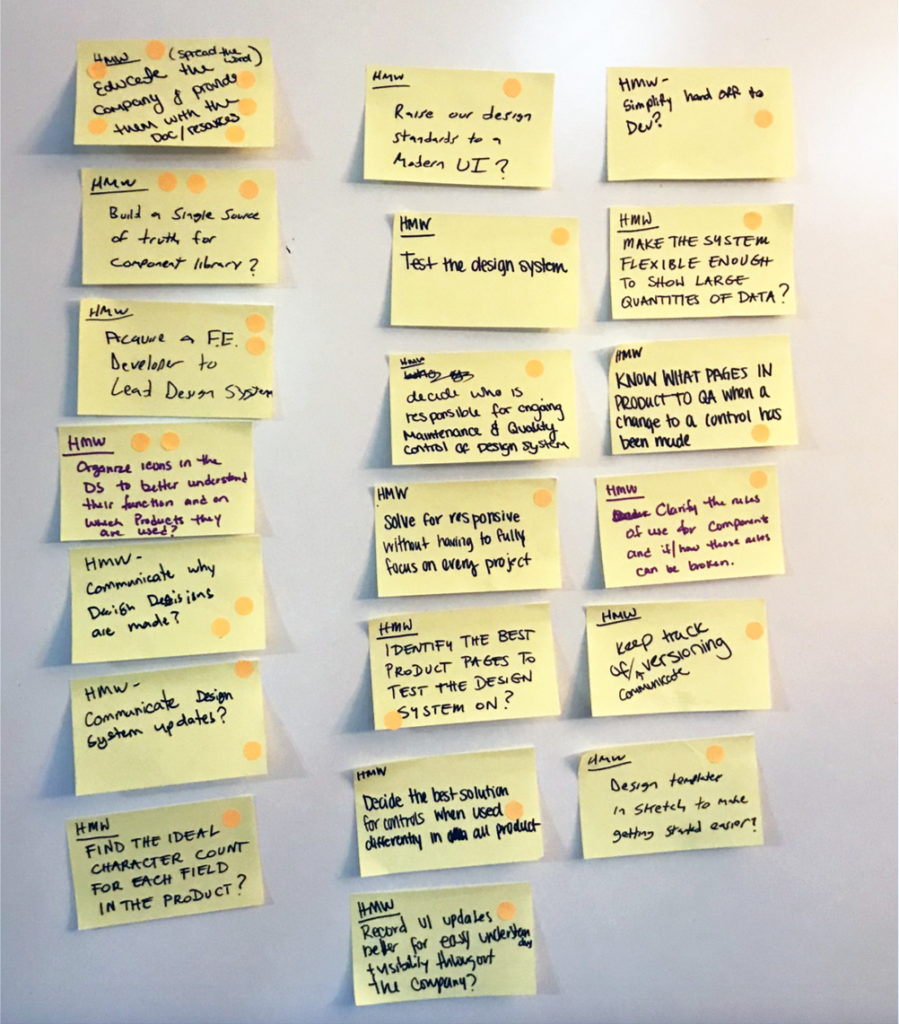 HMW (spread the word)
Educate the
company & provide
them with the
Doc/resources
HMW
Build a single source
of truth for
component library?
HMW
Acquire a F.E.
Developer to
Lead Design System
HMW
Organize icons in the
DS to better understand
their function and on
which Products they
are used?
HMW-
Communicate why
Design Decisions
are made?
HMW-
Communicate Design
System updates?
HMW
FIND THE IDEAL
CHARACTER COUNT
FOR EACH FIELD
IN THE PRODUCT?
HMW
Raise our design
standards to a
Modern UI?
HMW
Test the design system
HMW
decide who is
responsible for ongoing
Maintenance & Quality
control of Design system
HMW
Solve for responsive
without having to fully
focus on every project
HMW
IDENTIFY THE BEST
PRODUCT PAGES TO
TEST THE DESIGN
SYSTEM ON?
HMW
Decide the best solution
for controls when used
differently in all product
HMW
Record UI updates
better for easy understanding
+ visibility throughout
the company?
HMW-
Simplify hand off to
Dev?
HMW
MAKE THE SYSTEM
FLEXIBLE ENOUGH
TO SHOW LARGE
QUANTITIES OF DATA?
HMW
KNOW WHAT PAGES IN
PRODUCT TO QA WHEN A
change to a control has
been made
HMW
Clarify the rules
of use for components
and if/how those rules
can be broken.
HMW
keep track
of/versioning
communicate
HMW
Design templates
in sketch to make
getting started easier?